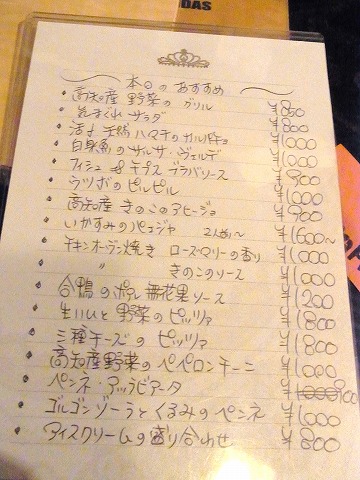 DAS
本日のおすすめ
高知産 野菜の グリル ¥850
気まぐれ サラダ ¥800
活〆 天然ハマチのカルパチョ ¥1000
白身魚のサルサ・ヴェルデ ¥1000
フィッシュ&チップス ブラバソース ¥900
ウツボのピルピル ¥1000
高知産 きのこのアヒージョ ¥900
いかすみのパエジャ 2人前〜 ¥1600〜
チキンオーブン焼き ローズマリーの香り ¥1000
〃 きのこのソース ¥1000
合鴨のポワレ 無花果ソース ¥1200
生ハムと野菜のピッツァ ¥1800
三種チーズの ピッツァ ¥1800
高知産野菜のペペロンチーニ ¥1000
ペンネ・アラビアータ ¥1000 900
ゴルゴンゾーラとくるみのペンネ ¥1000
アイスクリームの盛り合わせ ¥800